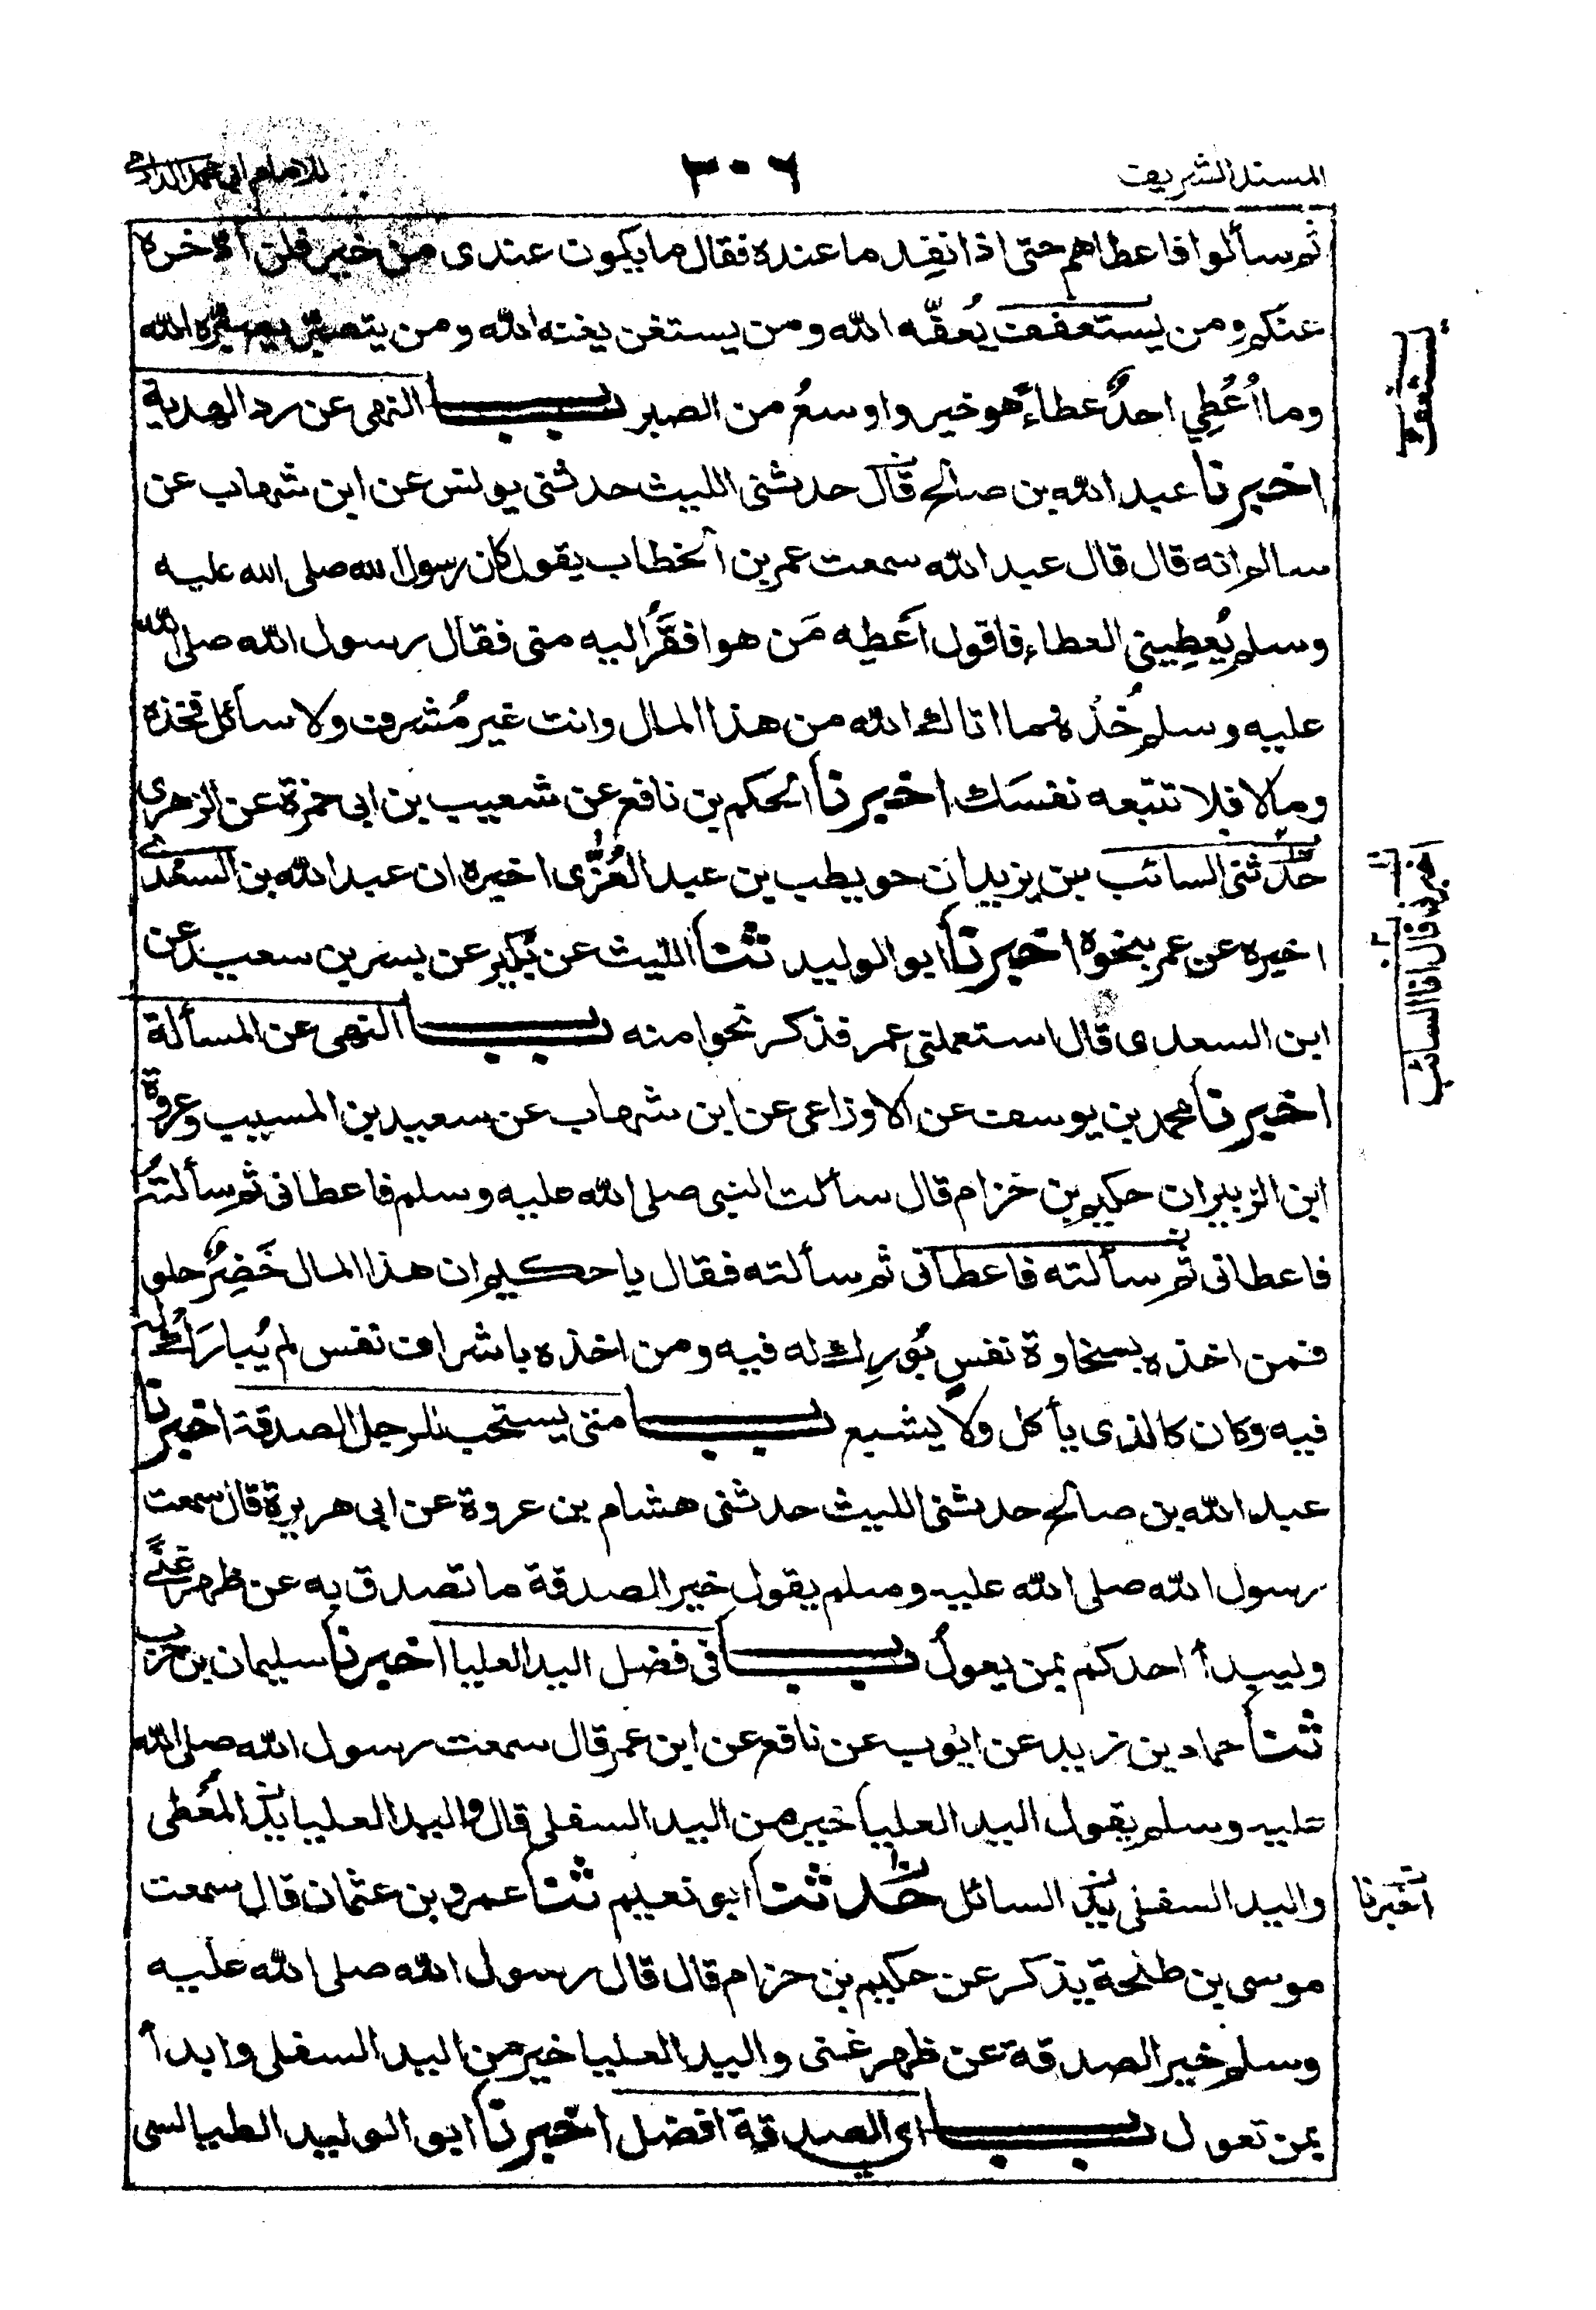 المسند الشريف ٢٠٦ للامام ابي محمد الدارمي
ثم سألوا فاعطاهم حتى اذا نفِد ما عنده فقال ما يكون عندى من خير فلن ادخره
عنكم ومن يستعفف يُعفّه الله ومن يستغن يغنه الله ومن يتصبر يصبّره الله
وما اُعُطِي احدٌ عطاءً هو خير واوسعُ من الصبر بــــاب النهى عن رد الهدية
اخبرنا عبد الله بن صالح قال حدثنى الليث حدثنى يونس عن ابن شهاب عن
سالم انه قال قال عبد الله سمعت عمر بن الخطاب يقول كان رسول الله صلى الله عليه
وسلم يُعطِينى العطاء فاقول اَعطِه مَن هو افقَرُ اليه منى فقال رسول الله صلى الله
عليه وسلم خُذُه وما اتاك الله من هذا المال وانت غير مُشرف ولا سائل فخذه
وما لا فلا تتبعه نفسَك اخبرنا الحكم بن نافع عن شعيب بن ابى حمزة عن الزهرى
حدّثنى السائب بن يزيد ان حويطب بن عبد العُزّى اخبره ان عبد الله بن السعدى
اخبره عن عمر بنحوه اخبرنا ابو الوليد ثنا الليث عن بُكير عن بسر بن سعيد عن
ابن السعدى قال استعملنى عمر فذكر نحوا منه بــــاب النهى عن المسألة
اخبرنا محمد بن يوسف عن الاوزاعى عن ابن شهاب عن سعيد بن المسيب وعروة
ابن الزبير ان حكيم بن حزام قال سألت النبى صلى الله عليه وسلم فاعطانى ثم سألتُه
فاعطانى ثم سألته فاعطانى ثم سألته فقال يا حكيم ان هذا المال خَضِرٌ حلو
فمن اخذه بسخاوة نفسٍ بُورِك له فيه ومن اخذه باشراف نفس لم يُبارَك له
فيه وكان كالذى يأكل ولا يشبع بــــاب متى يستحب للرجل الصدقة اخبرنا
عبد الله بن صالح حدثنى الليث حدثنى هشام بن عروة عن ابى هريرة قال سمعت
رسول الله صلى الله عليه وسلم يقول خير الصدقة ما تصدق به عن ظهر غنًى
وليبدأ احدكم بمن يعولُ بــــاب فى فضل اليد العليا اخبرنا سليمان بن حرب
ثنا حماد بن زيد عن ايوب عن نافع عن ابن عمر قال سمعت رسول الله صلى الله
عليه وسلم يقول اليد العليا خير من اليد السفلى قال واليد العليا يَدُ المُعطى
واليد السفلى يَدُ السائل حَدثنا ابو نعيم ثنا عمرو بن عثمان قال سمعت
موسى بن طلحة يذكر عن حكيم بن حزام قال قال رسول الله صلى الله عليه
وسلم خير الصدقة عن ظهر غنى واليد العليا خير من اليد السفلى وابدأ
بمن تعول بــــاب اى الصدقة افضل اخبرنا ابو الوليد الطيالسى
اخبرنى قال انا السائب
اخبرنا